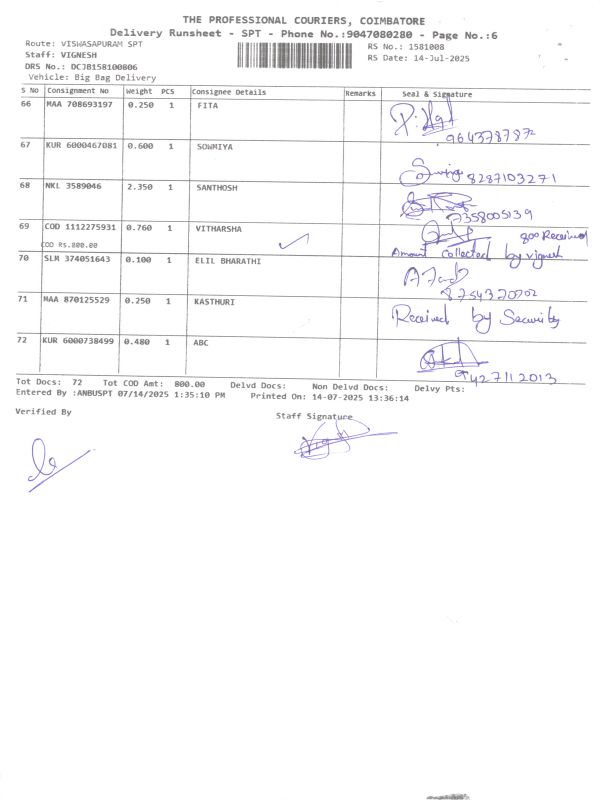 THE PROFESSIONAL COURIERS, COIMBATORE
Delivery Runsheet - SPT - Phone No.:9047080280 - Page No.:6
Route: VISWASAPURAM SPT
Staff: VIGNESH
DRS No.: DCJB158100806
Vehicle: Big Bag Delivery
RS No.: 1581008
RS Date: 14-Jul-2025
S No Consignment No Weight PCS Consignee Details Remarks Seal & Signature
66 MAA 708693197 0.250 1 FITA
9643787872
67 KUR 6000467081 0.600 1 SOWMIYA
8287103271
68 NKL 3589046 2.350 1 SANTHOSH
7358005139
69 COD 1112275931 0.760 1 VITHARSHA
COD RS.800.00
800 Received
Amount collected by vignesh
70 SLM 374051643 0.100 1 ELIL BHARATHI
8754370702
71 MAA 870125529 0.250 1 KASTHURI
Received by Security
72 KUR 6000738499 0.480 1 ABC
9427112013
Tot Docs: 72 Tot COD Amt: 800.00 Delvd Docs: Non Delvd Docs: Delvy Pts:
Entered By :ANBUSPT 07/14/2025 1:35:10 PM Printed On: 14-07-2025 13:36:14
Verified By
Staff Signature